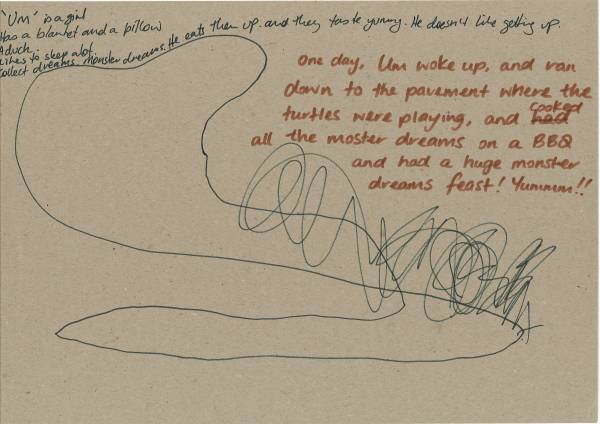 'Um' is a girl
Has a blanket and a pillow
A duch.
Likes to sleep alot.
Collect dreams. monster dreams. He eats them up. and they taste yummy. He doesn't like getting up.
One day, Um woke up, and ran
down to the pavement where the
turtles were playing, and cooked had
all the moster dreams on a BBQ
and had a huge monster
dreams feast! Yummm!!